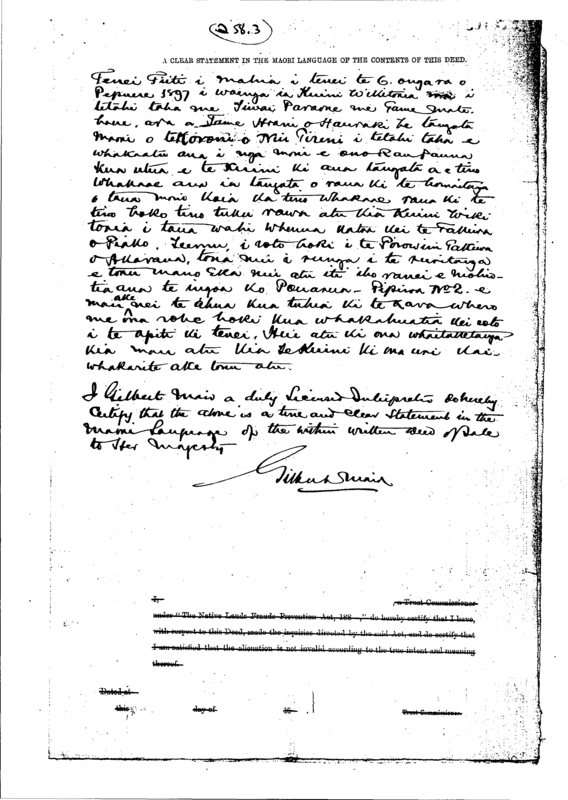 258.3
A CLEAR STATEMENT IN THE MAORI LANGUAGE OF THE CONTENTS OF THIS DEED.
Tenei Tiiti i mahia i tenei te 6. o ngara o
Pepuere 1897 i waenga ia Kuini Wikitoria i
tetahi taha me
hane, ara a o Hauraki he tangata
Maori o te Koroni o Niu Tireni i tetahi taha e
whakaatu ana i nga moni e ono Rau Pauna
kua utua e te Kuini ki aua tangata a e tino
whakaae ana ia tangata o raua ki te
o taua moni Koia ka tino whakaae raua ki te
tino hoko tino tuku rawa atu kia Kuini Wiki
toria i taua wahi whenua katoa kei te Takiwa
o Piako, i roto hoki i te Porowini
o Akarana, tona nui i runga i te ruritanga
e toru mano Eka nui atu iti iho ranei e mohio-
tia ana te ingoa ko Pouarua-Pipiroa No 2. e
mau ake nei te ahua kua tuhia ki te kara whero
me ona rohe hoki kua whakahuatia kei roto
i te apiti ki tenei, Hei atu ki ona
kia mau atu kia te Kuini ki ona uri kai-
whakarite ake tonu atu.
I Gilbert Mair a duly Licensed Interpreter do hereby
Certify that the above is a true and clear statement in the
Maori Language of the within written deed of Sale
to Her Majesty
Gilbert Mair
I, a Trust Commissioner
under "The Native Lands Frauds Prevention Act, 188 ," do hereby certify that I have,
with respect to this Deed, made the inquiries directed by the said Act, and do certify that
I am satisfied that the alienation is not invalid according to the true intent and meaning
thereof.
Dated at
this day of 18
Trust Commissioner.